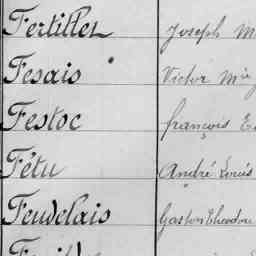 Fertillet Joseph M
Fesais Victor Mie
Festoc françois E
Fétu André Louis
Feudelais Gaston Theodore